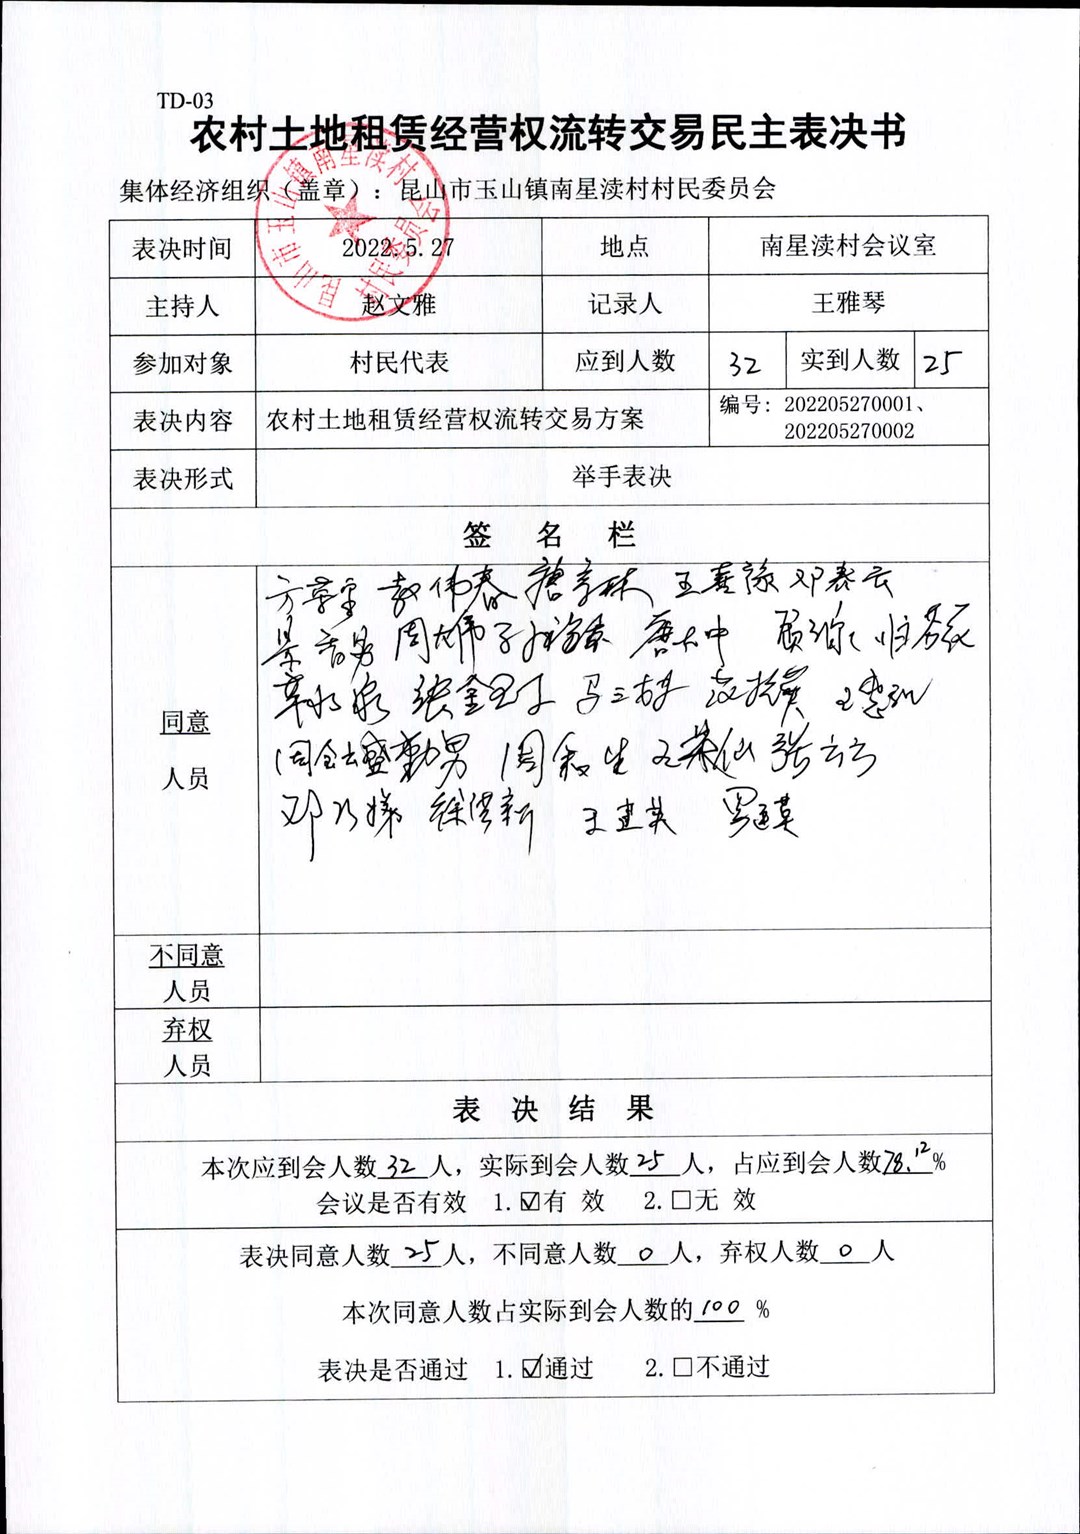 TD-03
农村土地租赁经营权流转交易民主表决书
集体经济组织（盖章）：昆山市玉山镇南星渎村村民委员会
昆山市玉山镇南星渎村
村民委员会
表决时间 2022.5.27 地点 南星渎村会议室
主持人 赵文雅 记录人 王雅琴
参加对象 村民代表 应到人数 32 实到人数 25
表决内容 农村土地租赁经营权流转交易方案 编号：202205270001、
202205270002
表决形式 举手表决
签 名 栏
唐 王 邓
周 唐大中 顾
张金 马三 王
同意 周 盛勤男 周 生 张
人员 邓 新 王建英 罗
不同意
人员
弃权
人员
表 决 结 果
本次应到会人数32人，实际到会人数25人，占应到会人数78.12%
会议是否有效 1.☑有 效 2.□无 效
表决同意人数25人，不同意人数0人，弃权人数0人
本次同意人数占实际到会人数的100%
表决是否通过 1.☑通过 2.□不通过